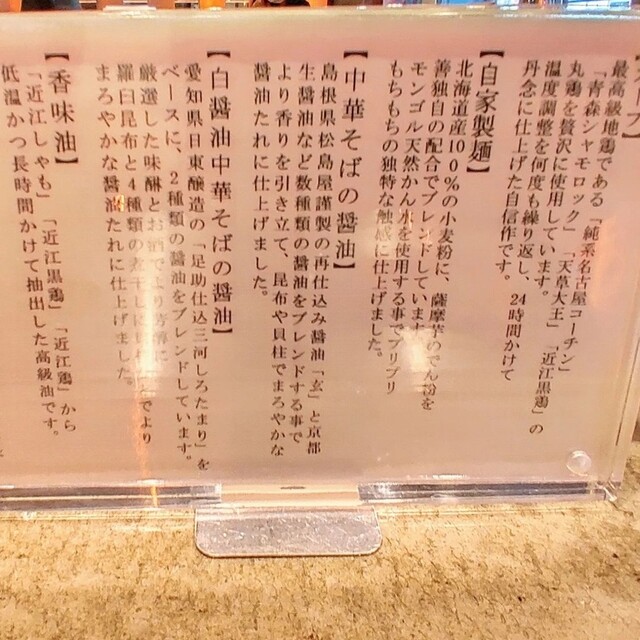 最高級地鶏である「純系名古屋コーチン」
「青森シャモロック」「天草大王」「近江黒鶏」の
丸鶏を贅沢に使用しています。
温度調整を何度も繰り返し、24時間かけて
丹念に仕上げた自信作です。
【自家製麺】
北海道産100%の小麦粉に、薩摩芋のでん粉を
善独自の配合でブレンドしています
モンゴル天然かん水を使用する事でプリプリ
もちもちの独特な触感に仕上げました。
【中華そばの醤油】
島根県松島屋謹製の再仕込み醤油「玄」と京都
生醤油など数種類の醤油をブレンドする事で
より香りを引き立て、昆布や貝柱でまろやかな
醤油たれに仕上げました。
【白醤油中華そばの醤油】
愛知県日東醸造の「足助仕込三河しろたまり」を
ベースに、2種類の醤油をブレンドしています。
厳選した味醂とお酒で
でより
羅臼昆布と4種類の煮干し
まろやかな醤油たれに仕上げました。
【香味油】
「近江しゃも」「近江黒鶏」「近江鶏」から
低温かつ長時間かけて抽出した高級油です。